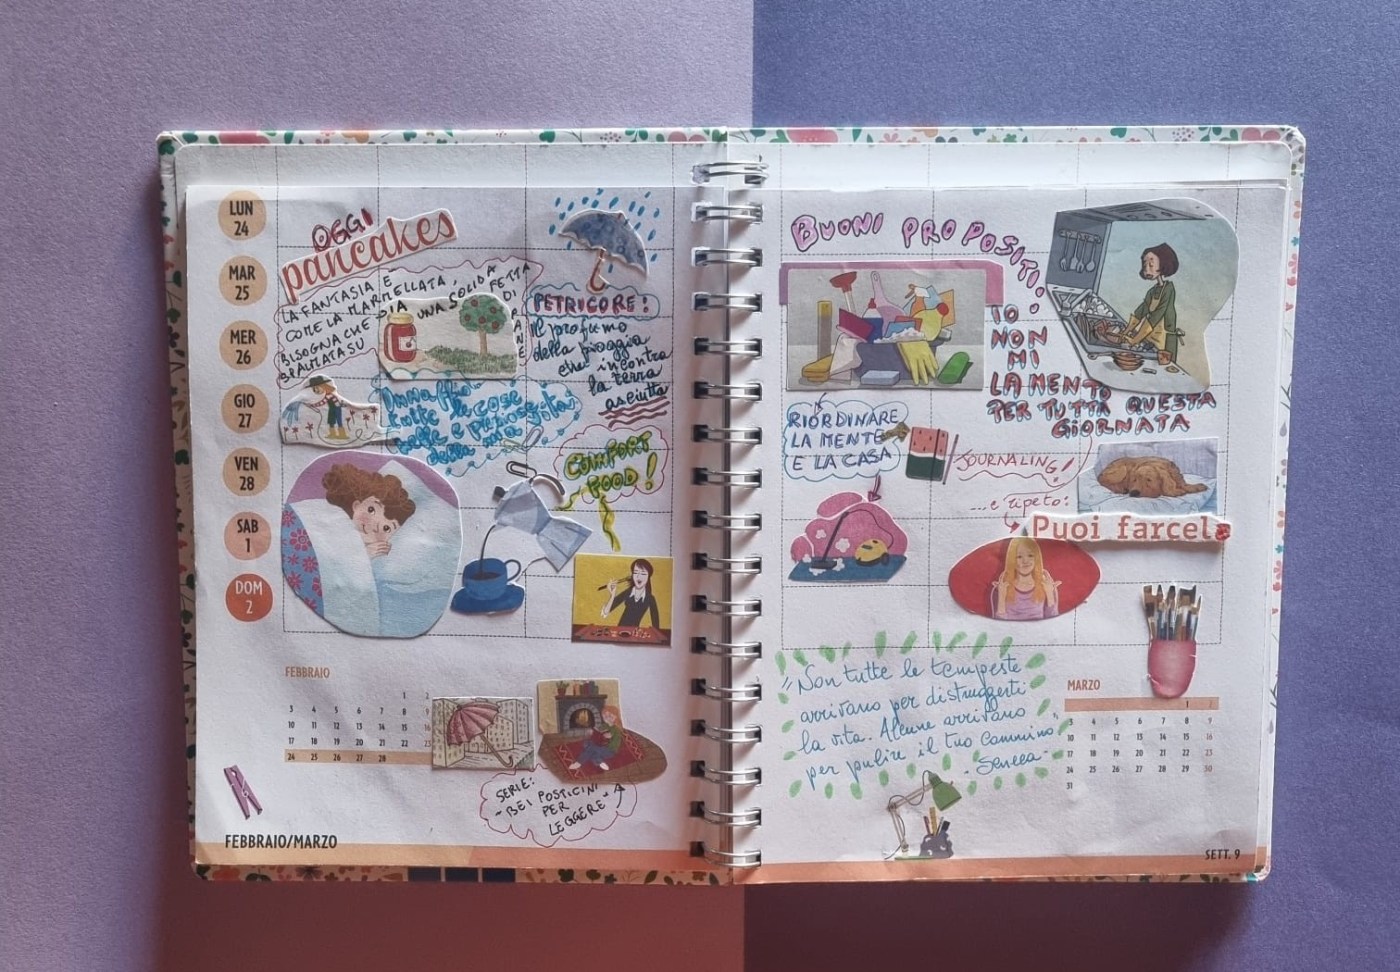 LUN
24
MAR
25
MER
26
GIO
27
VEN
28
SAB
1
DOM
2
OGGI
pancakes
LA FANTASIA E
COME LA MARMELLATA,
BISOGNA CHE SIA UNA SOLIDA FETTA
SPALMATA SU
DI
PANE
PETRICORE!
il profumo
della pioggia
che incontra
la terra
asciutta
Annaffio
tutte le cose
belle e
della mia vita!
COMFORT
FOOD!
FEBBRAIO
1 2
3 4 5 6 7 8 9
10 11 12 13 14 15 16
17 18 19 20 21 22 23
24 25 26 27 28
SERIE:
"BEI POSTICINI
PER
LEGGERE"
FEBBRAIO/MARZO
BUONI PROPOSITI:
IO
NON
MI
LAMENTO
PER TUTTA QUESTA
GIORNATA
RIORDINARE
LA MENTE
E LA CASA
JOURNALING!
...e ripeto:
Puoi farcela
"Non tutte le tempeste
arrivano per distruggerti
la vita. Alcune arrivano
per pulire il tuo cammino"
- Seneca -
MARZO
1 2
3 4 5 6 7 8 9
10 11 12 13 14 15 16
17 18 19 20 21 22 23
24 25 26 27 28 29 30
31
SETT. 9